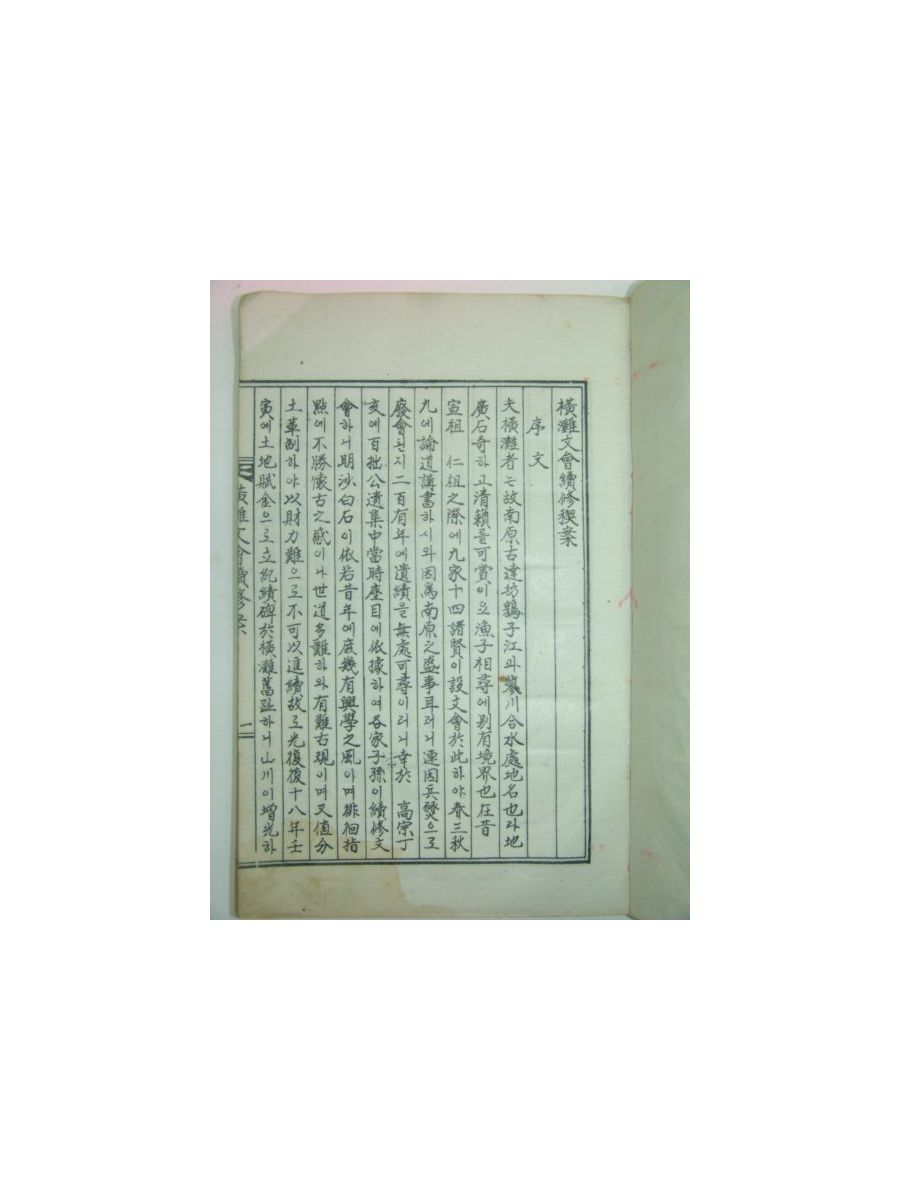 橫灘文會續修稧案
序文
夫橫灘者는故南原古達坊鶉子江과蓼川合水處地名也라地
廣石奇하고淸籟를可賞이오漁子相尋에別有境界也在昔
宣祖 仁祖之際에九家十四諸賢이設文會於此하야春三秋
九에論道講書하시와因爲南原之盛事耳러니連因兵燹으로
廢會된지二百有年에遺績을無處可尋이러니幸於 高宗丁
亥에百拙公遺集中當時座目에依據하여各家子孫이續修文
會하니明沙白石이依若昔年에庶幾有興學之風이며徘徊指
點에不勝懷古之感이나世道多難하와有難右現이며又值分
土革制하야以財力難으로不可以進續故로光復後十八年壬
寅에土地賦金으로立紀績碑於橫灘舊趾하니山川이增光하
橫灘文會續修案 一